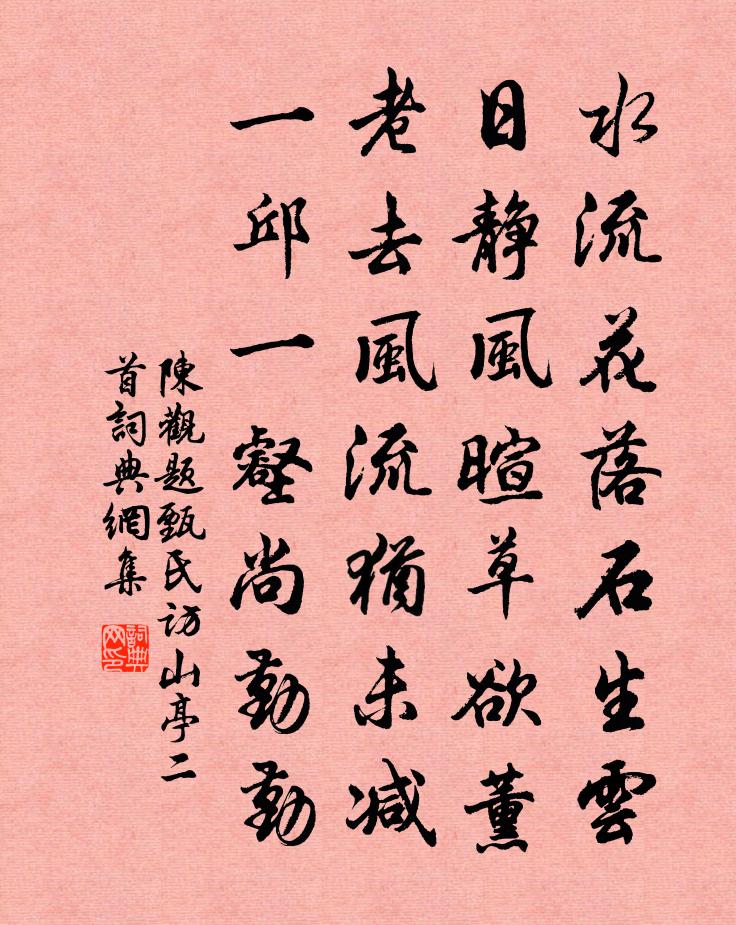 水流花落石生雲
日静風暄草欲薰
老去風流猶未減
一邱一壑尚勤勤
陳觀题甄氏访山亭二
首詞典網集
詞典
网印